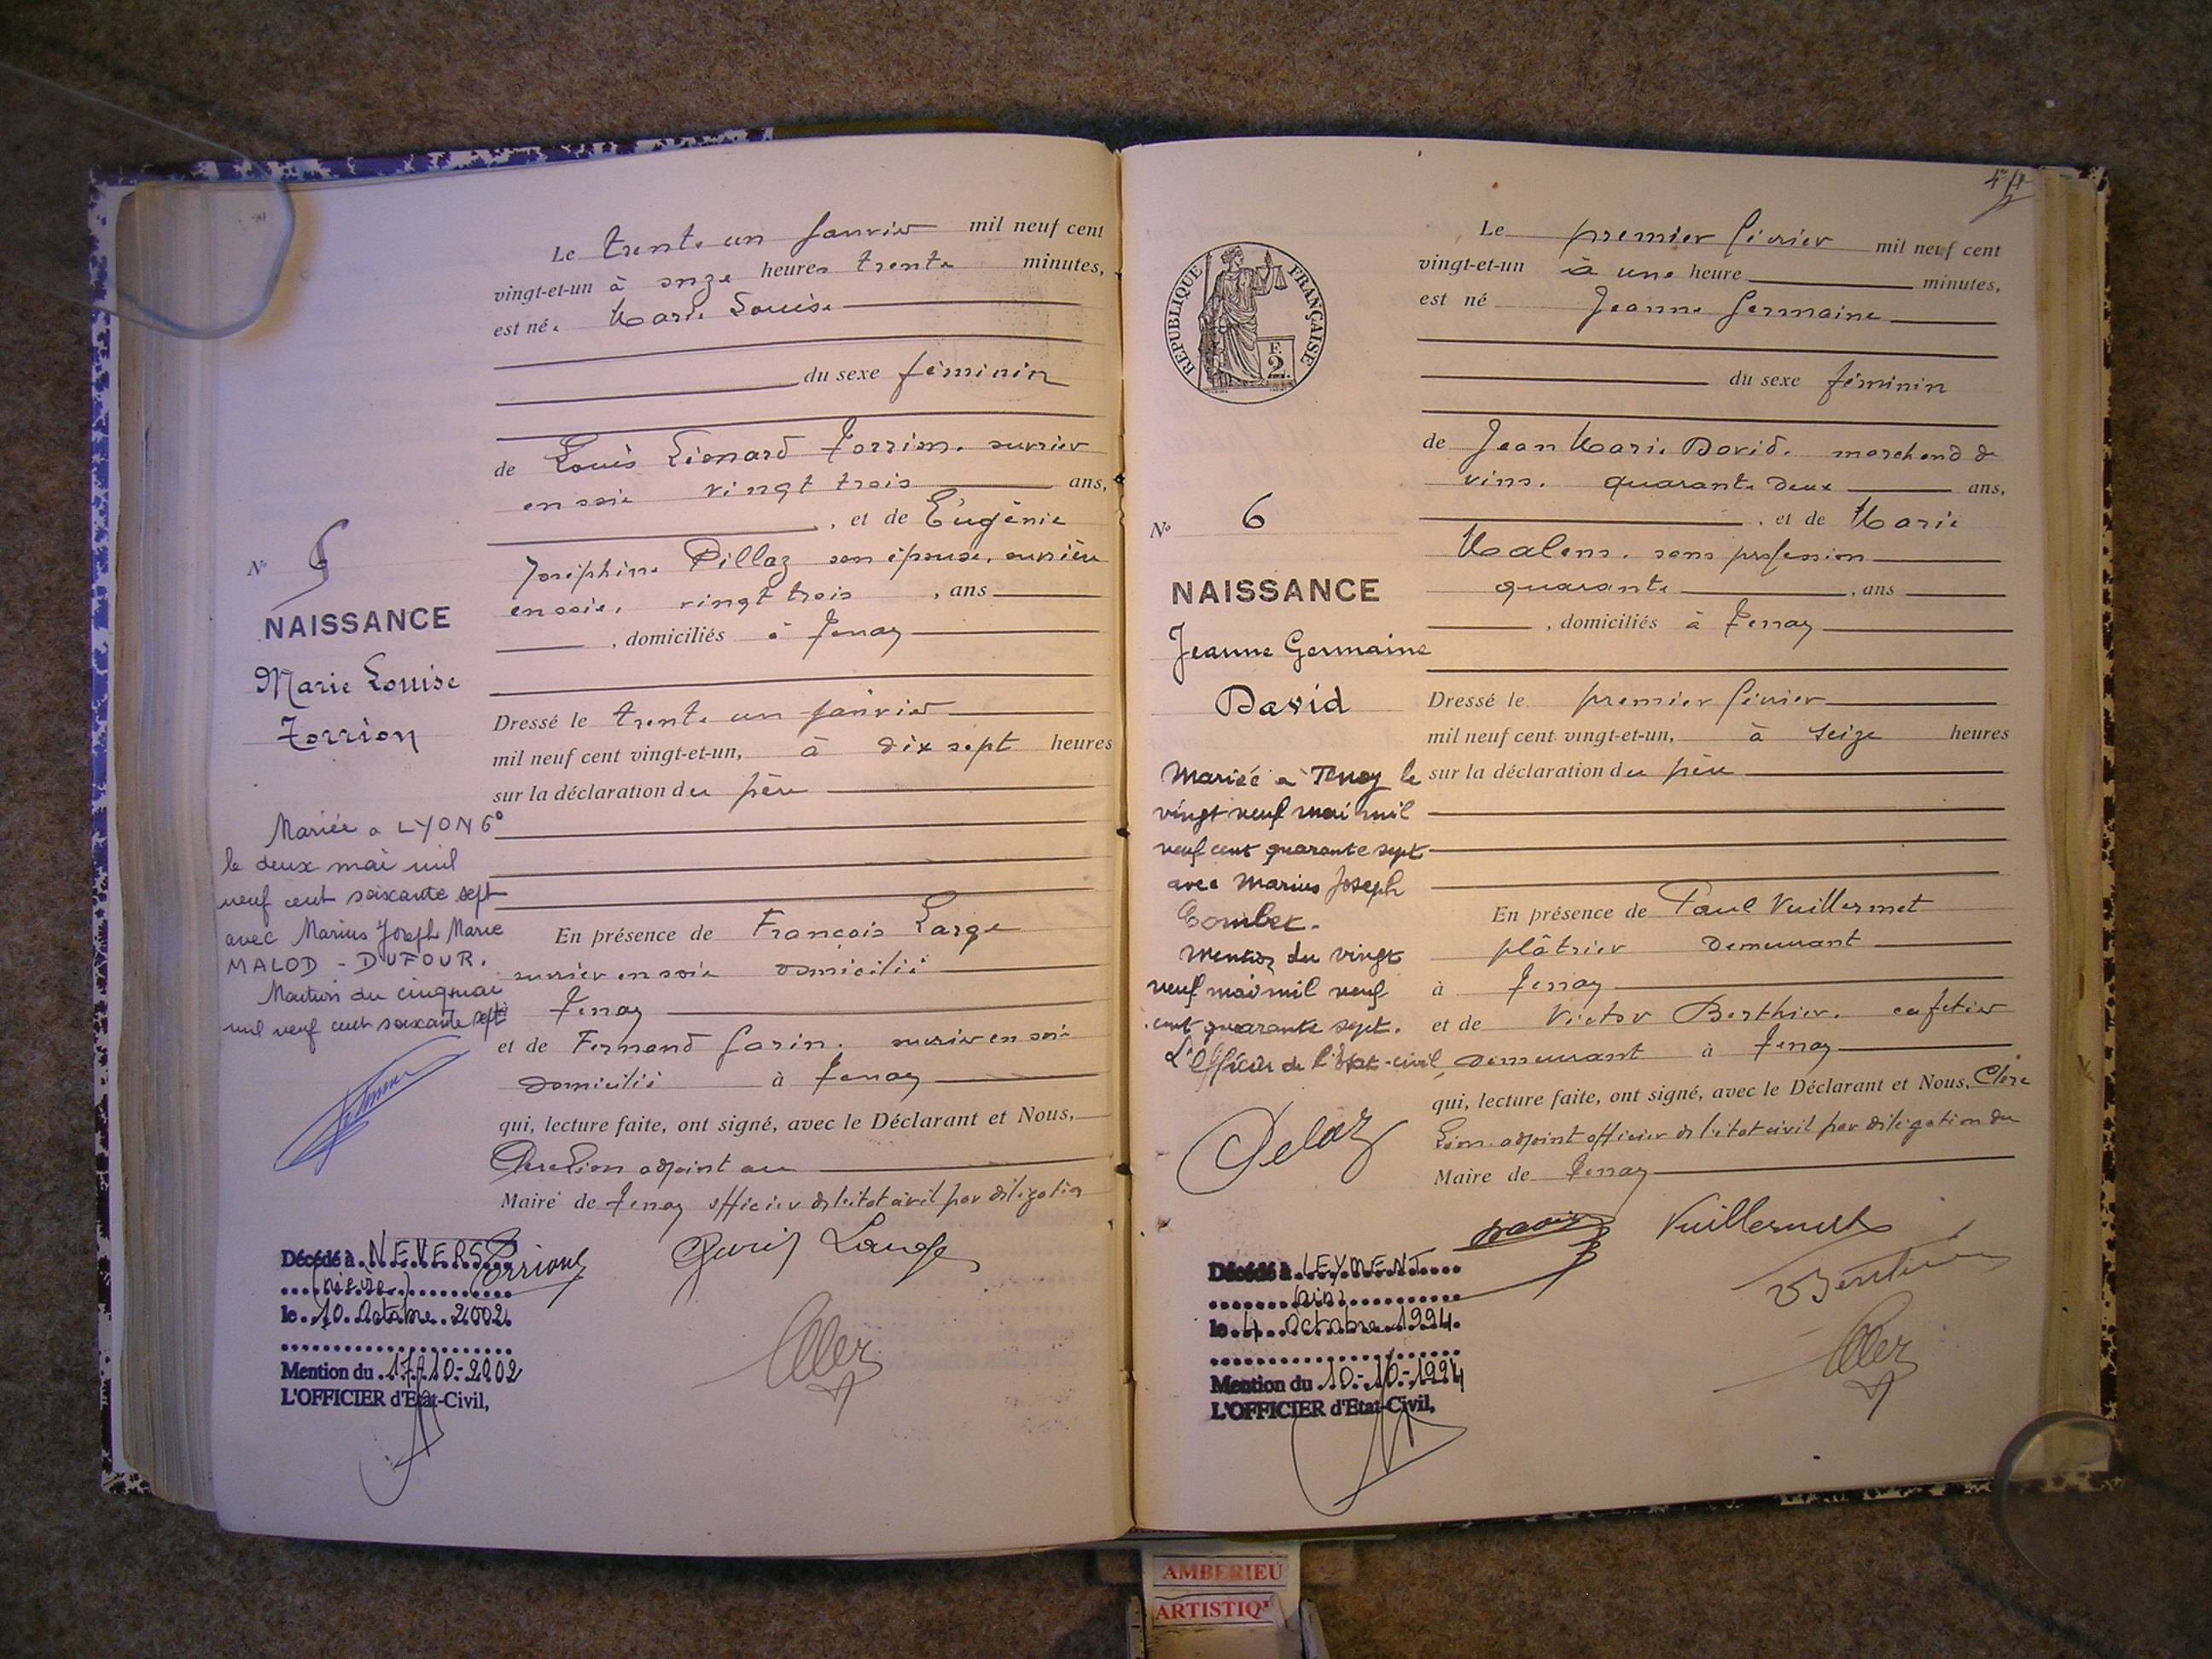 Le trente un janvier mil neuf cent
vingt-et-un à onze heures trente minutes,
est née Marie Louise
du sexe féminin
de Louis Léonard Torrion, ouvrier
en soie vingt trois ans,
, et de Eugénie
Joséphine Pillaz son épouse, ouvrière
en soie, vingt trois , ans
, domiciliés à Tenay
Dressé le trente un janvier
mil neuf cent vingt-et-un, à dix sept heures
sur la déclaration du père
En présence de François Large
ouvrier en soie domicilié
Tenay
et de Fernand Gorin, ouvrier en soie
domicilié à Tenay
qui, lecture faite, ont signé, avec le Déclarant et Nous,
Clere Léon adjoint au
Maire de Tenay officier de l'état civil par délégation
N° 5
NAISSANCE
Marie Louise
Torrion
Mariée a LYON 6°
le deux mai mil
neuf cent soixante sept
avec Marius Joseph Marie
MALOD - DUFOUR.
Mention du cinq mai
mil neuf cent soixante sept
Décédé à NEVERS
(nièvre)
le 10 Octobre 2002
Mention du 17-10-2002
L'OFFICIER d'Etat-Civil,
Torrion
Large
4
Le premier février mil neuf cent
vingt-et-un à une heure minutes,
est né Jeanne Germaine
du sexe féminin
de Jean Marie David, marchand de
vins, quarante deux ans,
, et de Marie
Malens, sans profession
quarante , ans
, domiciliés à Tenay
Dressé le premier février
mil neuf cent vingt-et-un, à seize heures
sur la déclaration du père
En présence de Paul Vuillermet
plâtrier demeurant
à Tenay
et de Victor Berthier, cafetier
demeurant à Tenay
qui, lecture faite, ont signé, avec le Déclarant et Nous, Clere
Léon adjoint officier de l'état civil par délégation du
Maire de Tenay
REPUBLIQUE FRANÇAISE
F.
2
N° 6
NAISSANCE
Jeanne Germaine
David
Mariée à Tenay le
vingt neuf mai mil
neuf cent quarante sept
avec Marius Joseph
Combet.
Mention du vingt
neuf mai mil neuf
cent quarante sept.
L'Officier de l'Etat-civil,
Delaz
David Vuillermet
Berthier
Décédé à LEYMENT
(Ain)
le 4 Octobre 1994
Mention du 10-10-1994
L'OFFICIER d'Etat-Civil,
AMBERIEU
ARTISTIQ